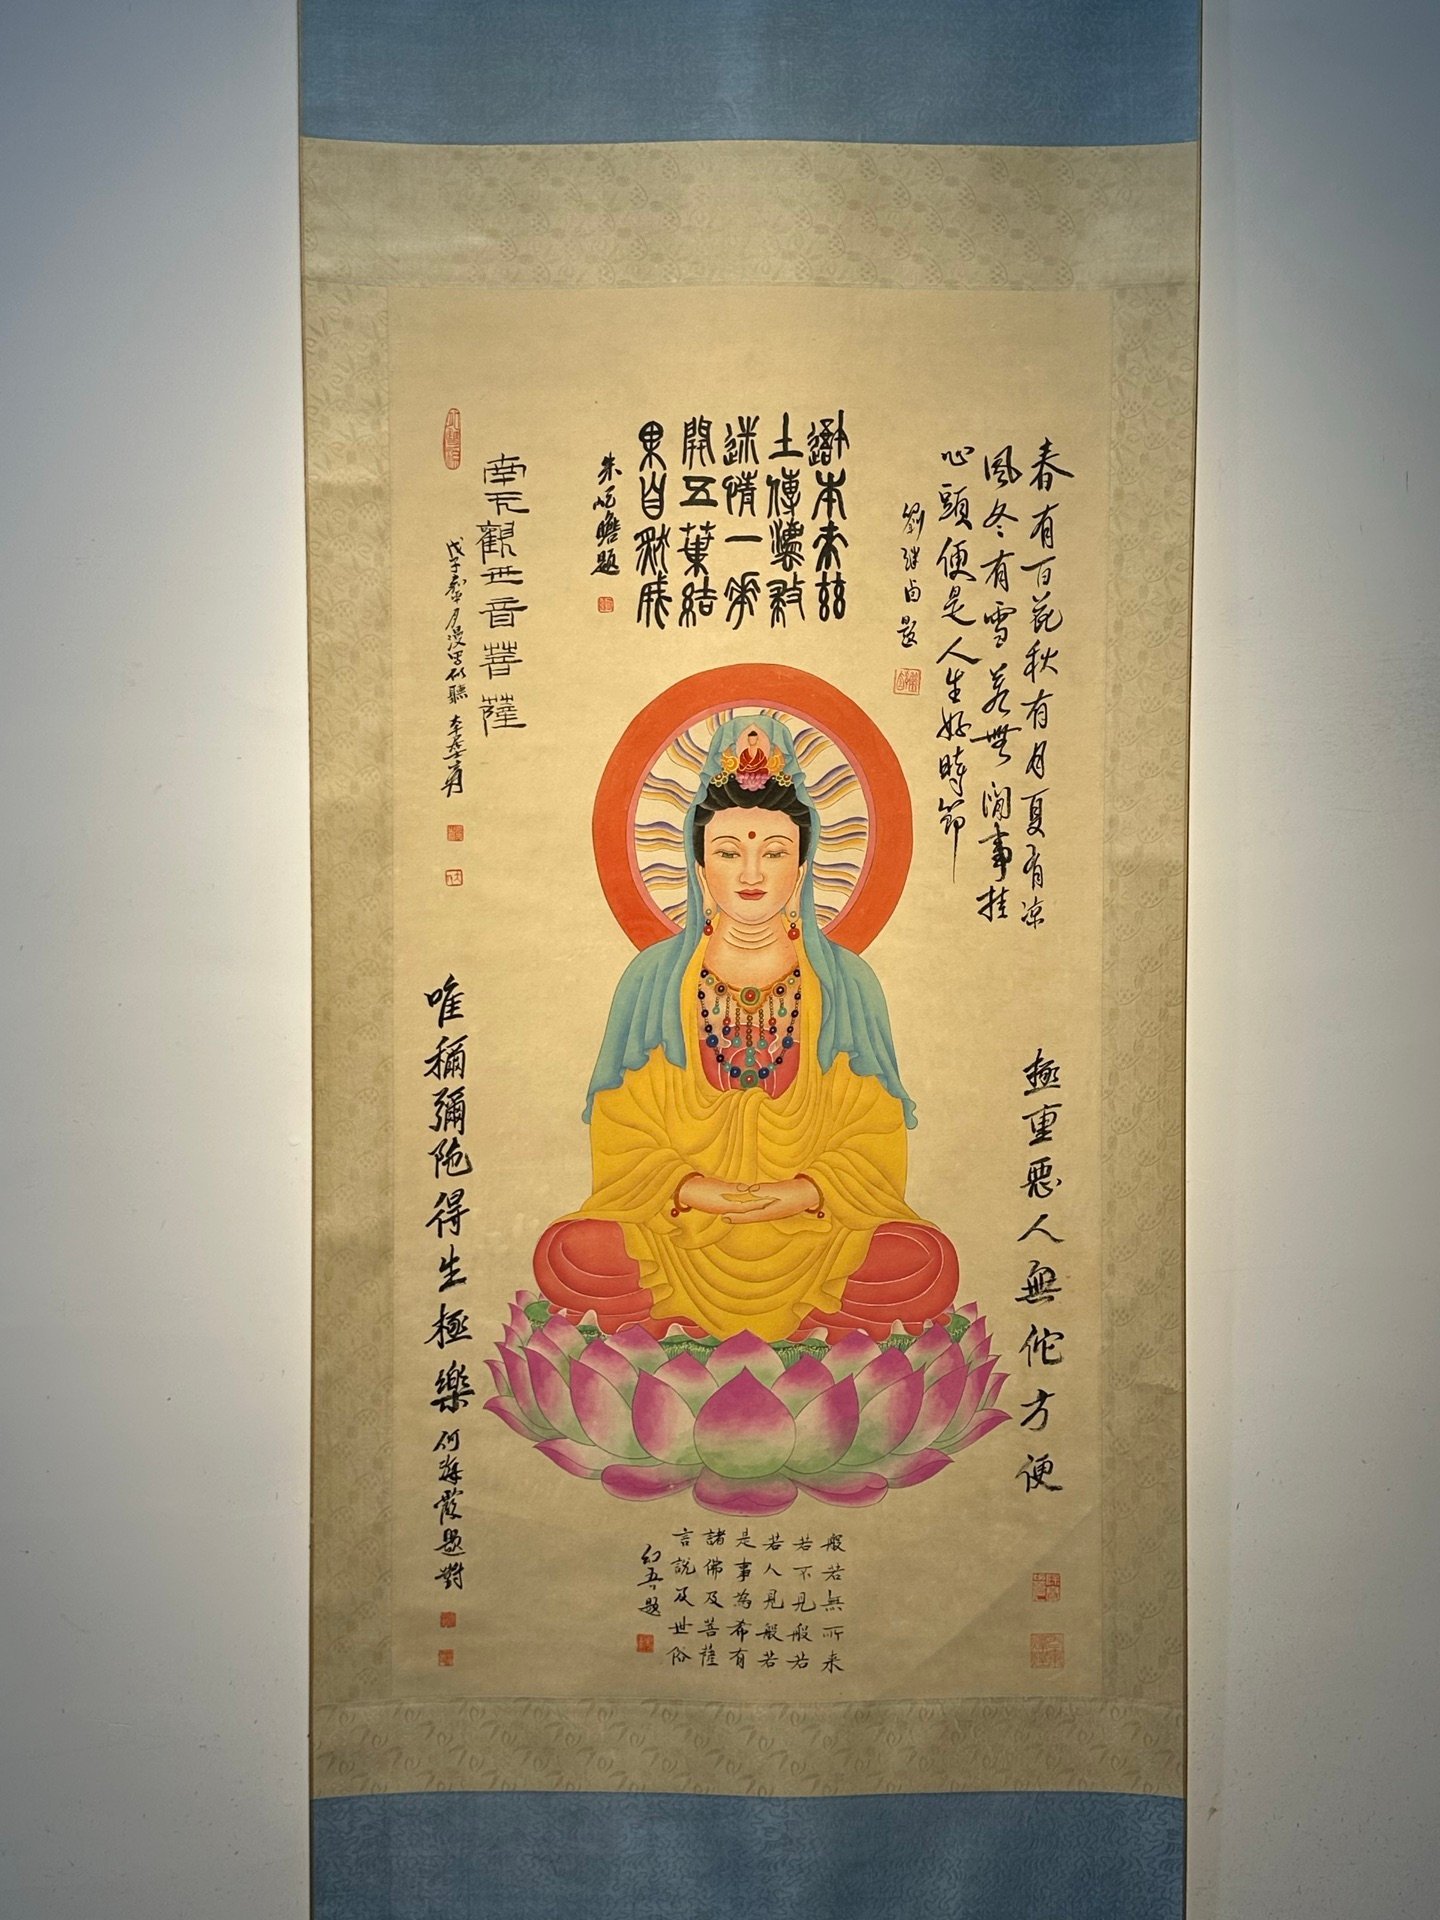 春有百花秋有月夏有凉
風冬有雪若無閒事挂
心頭便是人生好時節
劉继卣題
吾本来兹
土傳灋救
迷情一華
開五葉結
果自然成
朱屺瞻題
南无觀世音菩薩
戊子月漫写
極重惡人無佗方便
唯稱彌陀得生極樂
何海霞題對
般若無所来
若不見般若
若人見般若
是事為希有
諸佛及菩薩
言說及世俗
幻吾題